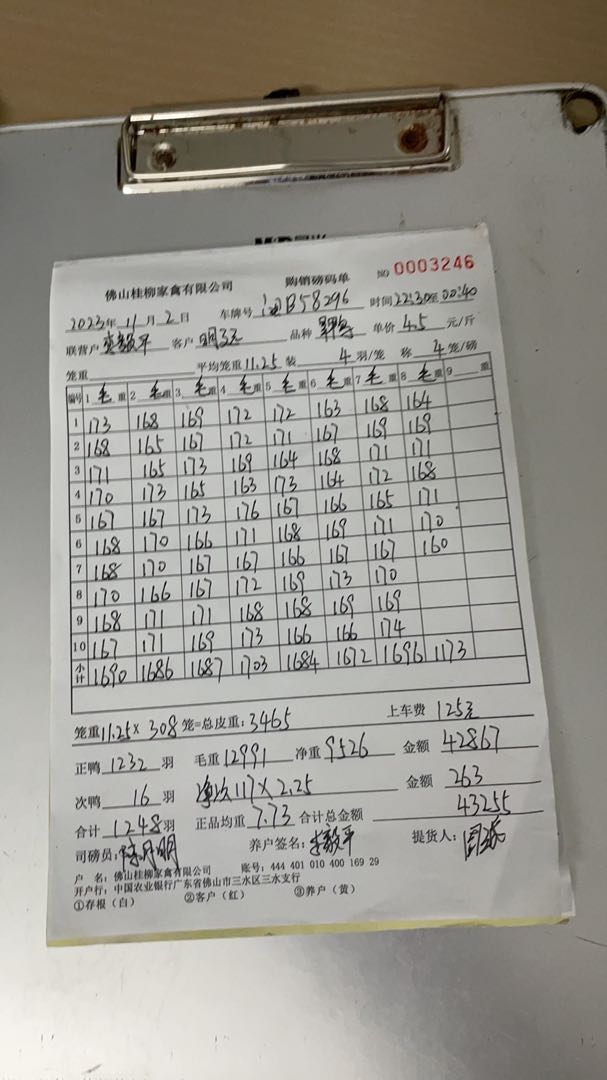 佛山桂柳家禽有限公司 购销磅码单 NO 0003246
2023年 11月 2日 车牌号 B58296 时间22:30至00:40
联营户 客户 品种 单价 4.5 元/斤
笼重 平均笼重11.25 装 4 羽/笼 称 4 笼/磅
编号 1 毛重 2 毛重 3 毛重 4 毛重 5 毛重 6 毛重 7 毛重 8 毛重 9 重
1 173 168 169 172 172 163 168 164
2 168 165 167 172 171 167 169 169
3 171 165 173 169 164 168 171 171
4 170 173 165 163 173 164 172 168
5 167 167 173 176 167 166 165 171
6 168 170 166 171 168 169 171 170
7 168 170 167 167 166 167 167 160
8 170 166 167 172 169 173 170
9 168 171 171 168 168 169 169
10 167 171 169 173 166 166 174
小计 1690 1686 1687 1703 1684 1672 1696 1173
笼重11.25× 308 笼=总皮重:3465 上车费 125元
正鸭 1232 羽 毛重12991 净重9526 金额 42867
次鸭 16 羽 117×2.25 金额 263
合计 1248羽 正品均重 7.73 合计总金额 43255
司磅员: 养户签名: 提货人:
户 名:佛山桂柳家禽有限公司 账号:444 401 010 400 169 29
开户行:中国农业银行广东省佛山市三水区三水支行
①存根(白) ②客户(红) ③养户(黄)